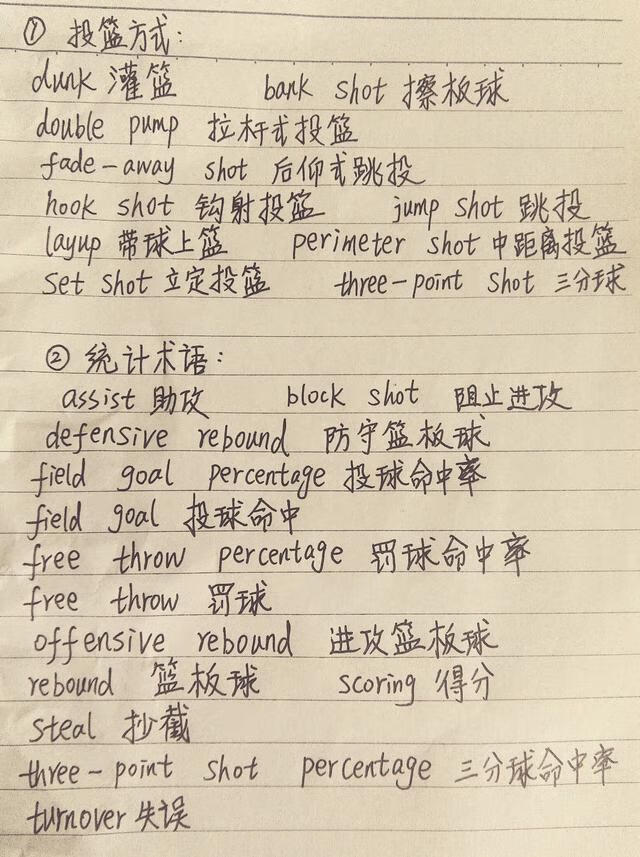 ① 投篮方式:
dunk 灌篮 bank shot 擦板球
double pump 拉杆式投篮
fade-away shot 后仰式跳投
hook shot 钩射投篮 jump shot 跳投
layup 带球上篮 perimeter shot 中距离投篮
set shot 立定投篮 three-point shot 三分球
② 统计术语:
assist 助攻 block shot 阻止进攻
defensive rebound 防守篮板球
field goal percentage 投球命中率
field goal 投球命中
free throw percentage 罚球命中率
free throw 罚球
offensive rebound 进攻篮板球
rebound 篮板球 scoring 得分
steal 抄截
three-point shot percentage 三分球命中率
turnover 失误